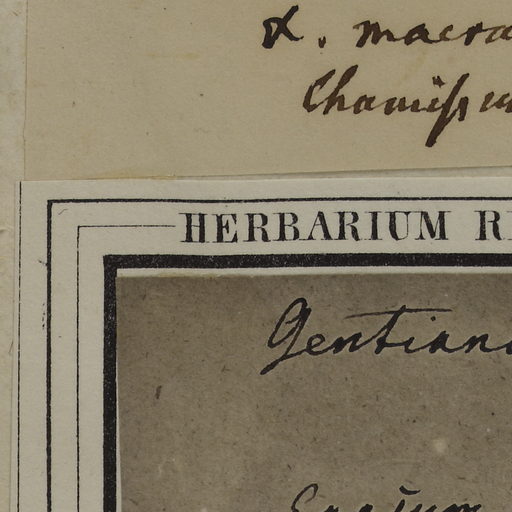 α. macra
Chamisso
HERBARIUM R
Gentian